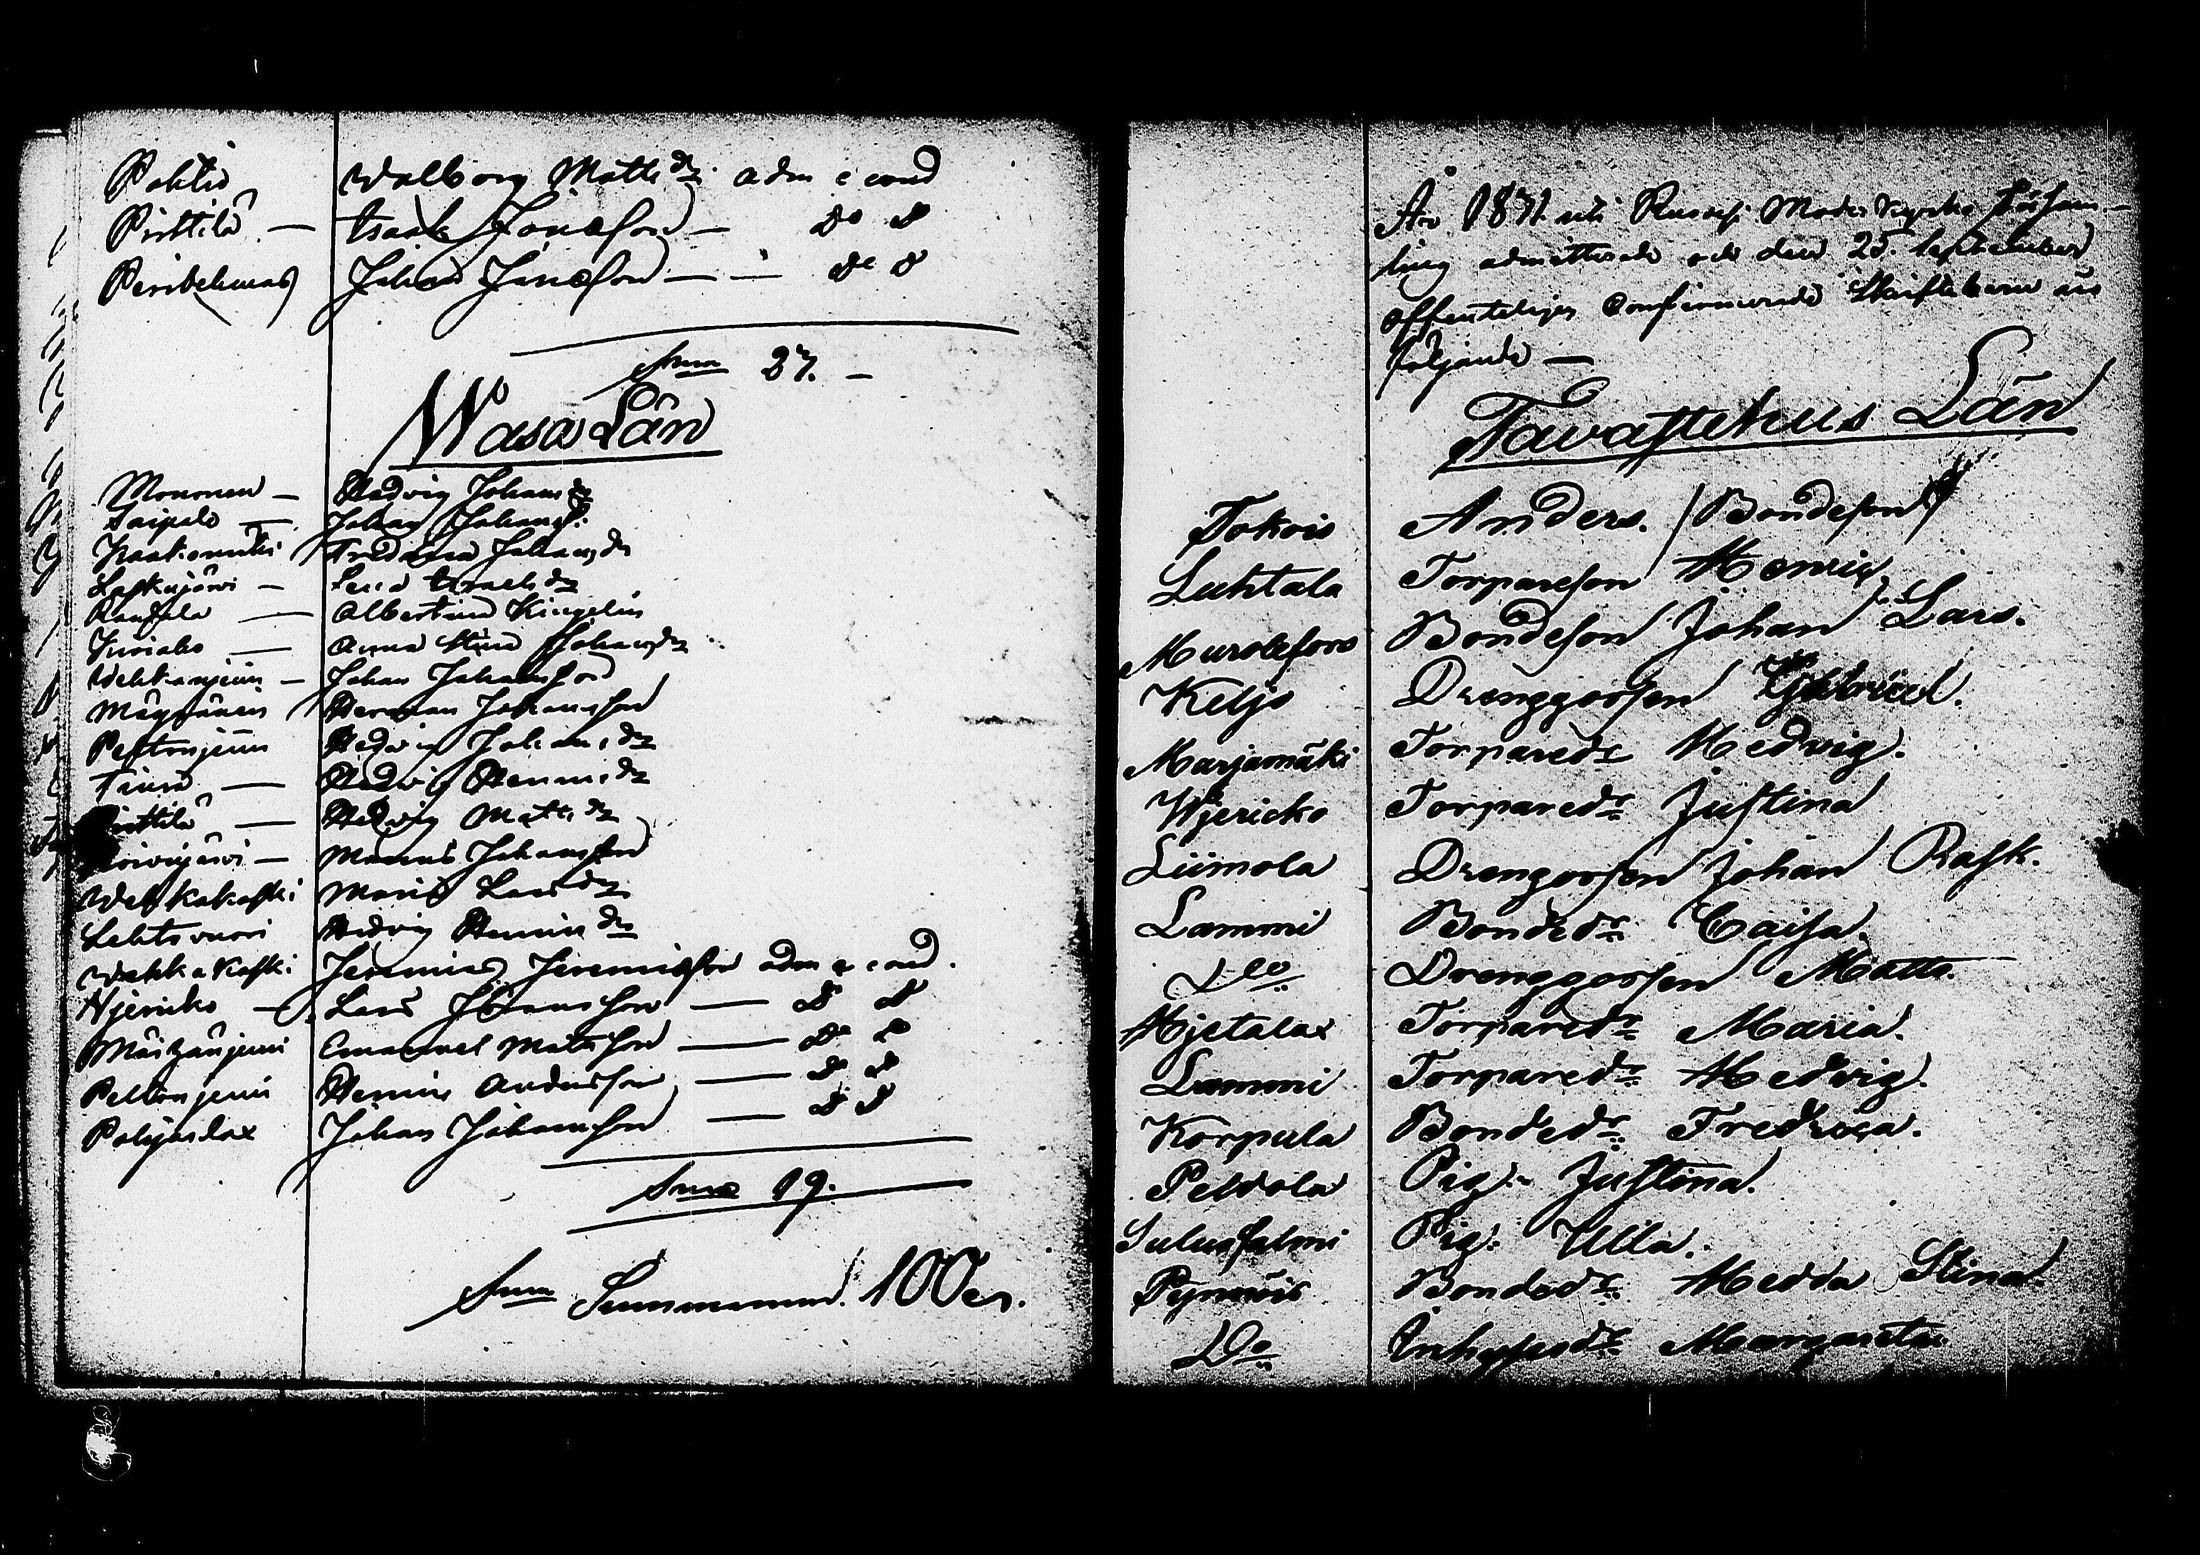 Pohtio Walborg Matts dr. adm e cond
Pirttilä — Isaak Jonasson — do do
Peribehmas Johan Jonasson — — do do
Sma 27. —
Wasa Län
Mononen — Hedvig Johans dr
Saipalo — Johan Johans s.
Fredrica Johans dr
— Lena Israels dr
— Albertina
— Anna Stina Johans dr
Johan Johansson
Herman Johansson
Peltonjemi Hedvig Johans dr
— Hedvig Henrics dr
Pirttilä — Hedvig Matts dr
— Manus Johansson
Wehkakoski Maria Lars dr
Lehtovuori Hedvig Henrics dr
Wehkakoski Jeremias Jeremiasson adm e cond.
Hjericko — Lars Johansson — do do
Emanuel Matsson — do do
Peltonjemi Henric Andersson — do do
Pohjoslax Johan Johansson — do do
Sma 19.
Sma Summarum. 100 er.
År 1831 uti Ruovesi Moderkyrko Församling
admitterade och den 25. September
offenteligen Confirmerade Skriftebarn äro
följande —
Tavastehus Län
Tokois Anders. / Bondeson
Luhtala Torpareson Henric
Murolefors Bondeson Johan Lars.
Keljo Drenggossen Gabriel.
Marjamäki Torpared:r Hedvig.
Hjericko Torpared:r Justina
Liimola Drengossen Johan Rask.
Lammi Bonded:r Caisa.
Do Drenggossen Matts.
Hjetalax Torpared:r Maria.
Lammi Torpared:r Hedvig.
Korpula Bonded:r Fredrica.
Peldola Pig: Justina.
Sulusalmi Pig: Ulla.
Pynnöis Bonded:r Hedda Stina.
Do Inhysesd:r Margareta.